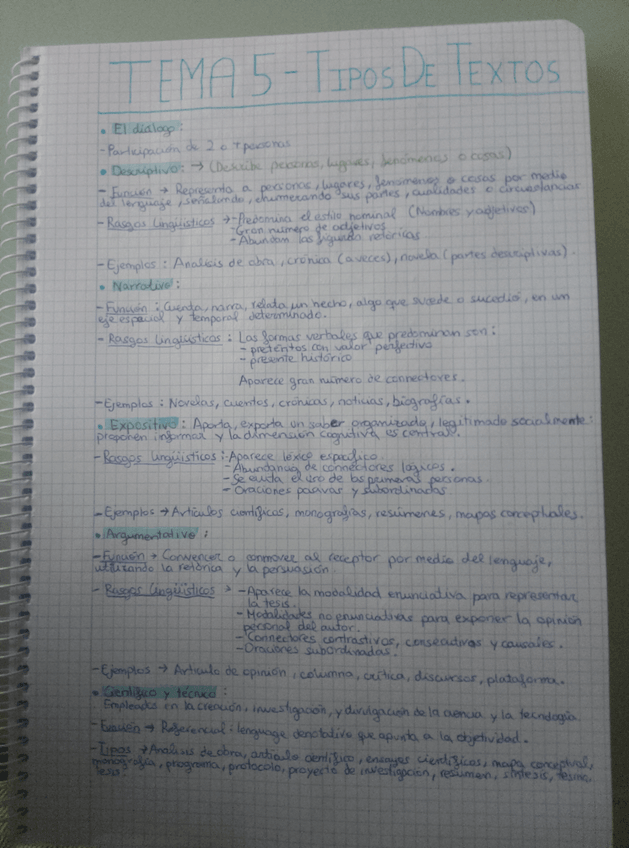 TEMA 5 - TIPOS DE TEXTOS
• El diálogo:
- Participación de 2 o + personas
• Descriptivo: → (Describe personas, lugares, fenómenos o cosas)
- Función → Representa a personas, lugares, fenómenos o cosas por medio
del lenguaje, señalando, enumerando sus partes, cualidades o circunstancias
- Rasgos Lingüísticos → - Predomina el estilo nominal (Nombres y adjetivos)
- Gran número de adjetivos
- Abundan las figuras retóricas
- Ejemplos: Análisis de obra, crónica (a veces), novela (partes descriptivas).
• Narrativo:
- Función: Cuenta, narra, relata un hecho, algo que sucede o sucedió, en un
eje espacial y temporal determinado.
- Rasgos Lingüísticos: Las formas verbales que predominan son:
- pretéritos con valor perfectivo
- presente histórico
Aparece gran número de conectores.
- Ejemplos: Novelas, cuentos, crónicas, noticias, biografías.
• Expositivo: Aporta, exporta un saber organizado, legitimado socialmente:
proponen informar y la dimensión cognitiva es central.
- Rasgos Lingüísticos: - Aparece léxico específico.
- Abundancia de connectores lógicos.
- Se evita el uso de las primeras personas.
- Oraciones pasivas y subordinadas
- Ejemplos → Artículos científicos, monografías, resúmenes, mapas conceptuales.
• Argumentativo:
- Función → Convencer o conmover al receptor por medio del lenguaje,
utilizando la retórica y la persuasión
- Rasgos Lingüísticos → - Aparece la modalidad enunciativa para representar
la tesis.
- Modalidades no enunciativas para exponer la opinión
personal del autor.
- Connectores contrastivos, consecutivos y causales.
- Oraciones subordinadas.
- Ejemplos → Artículo de opinión, columna, crítica, discursos, plataforma.
• Científico y técnico:
Empleados en la creación, investigación, y divulgación de la ciencia y la tecnología
- Función → Referencial: lenguage denotativo que apunta a la objetividad.
- Tipos → Análisis de obra, artículo científico, científicas, mapa conceptual,
monografía, programa, protocolo, proyecto de investigación, resumen, síntesis, tesina,
tesis.